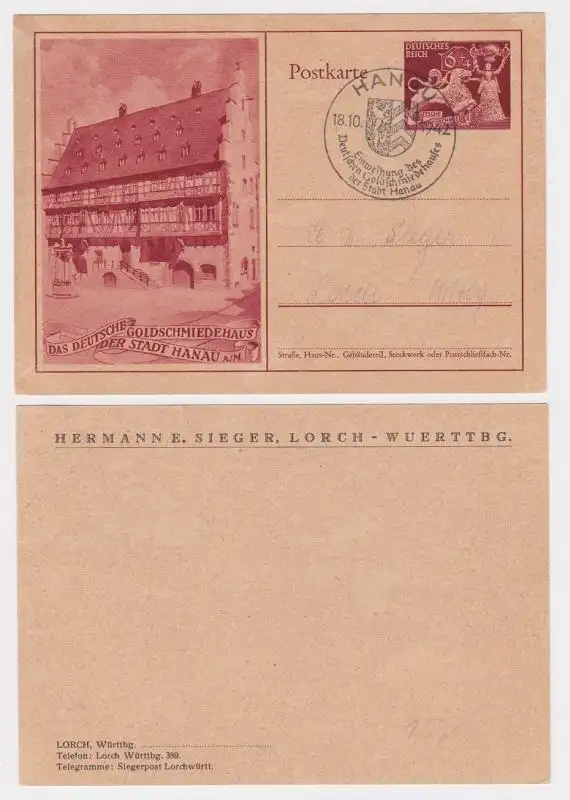 Postkarte
DEUTSCHES
REICH
6+4
HANAU
18.10.
1942
Einweihung des
Deutschen Goldschmiedehauses
der Stadt Hanau
H E Sieger
Lorch
DAS DEUTSCHE GOLDSCHMIEDEHAUS
DER STADT HANAU A/M
Straße, Haus-Nr., Gebäudeteil, Stockwerk oder Postschließfach-Nr.
HERMANN E. SIEGER, LORCH - WUERTTBG.
LORCH, Württbg.
Telefon: Lorch Württbg. 389.
Telegramme: Siegerpost Lorchwürtt.